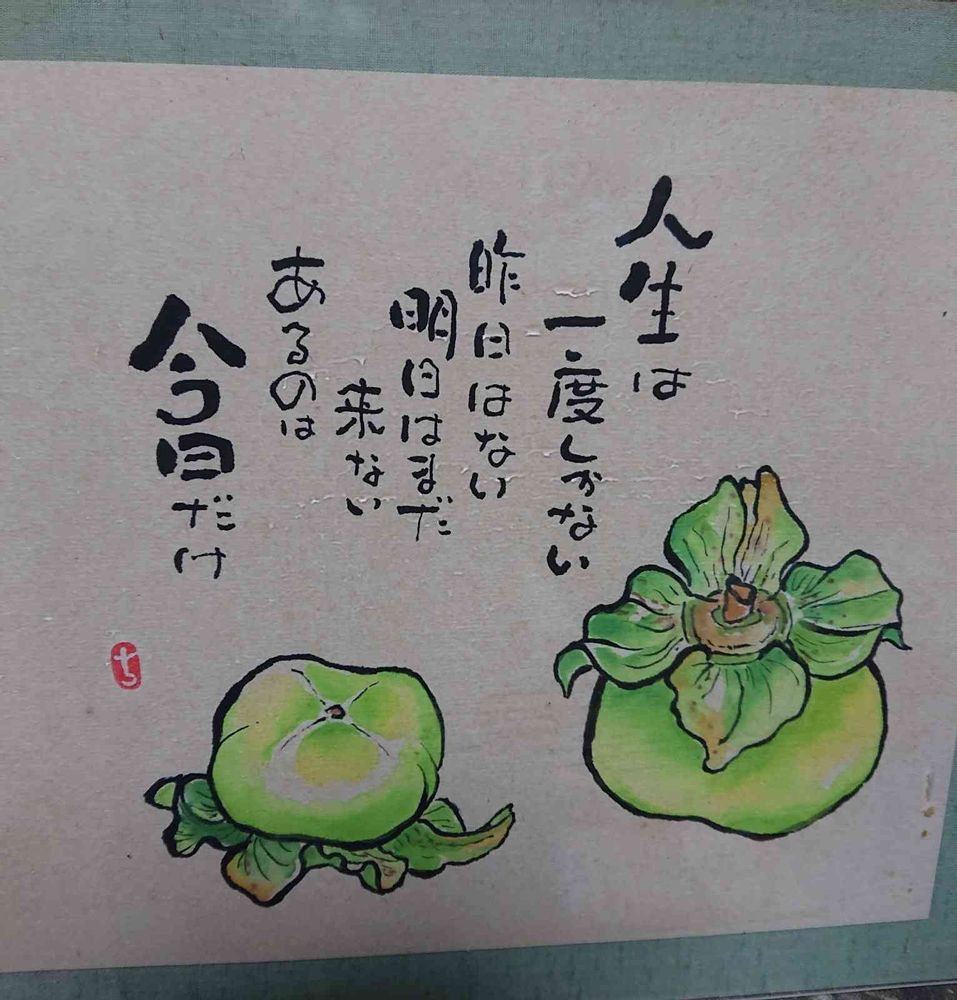 人生は
一度しかない
昨日はない
明日はまだ
来ない
あるのは
今日だけ
ち